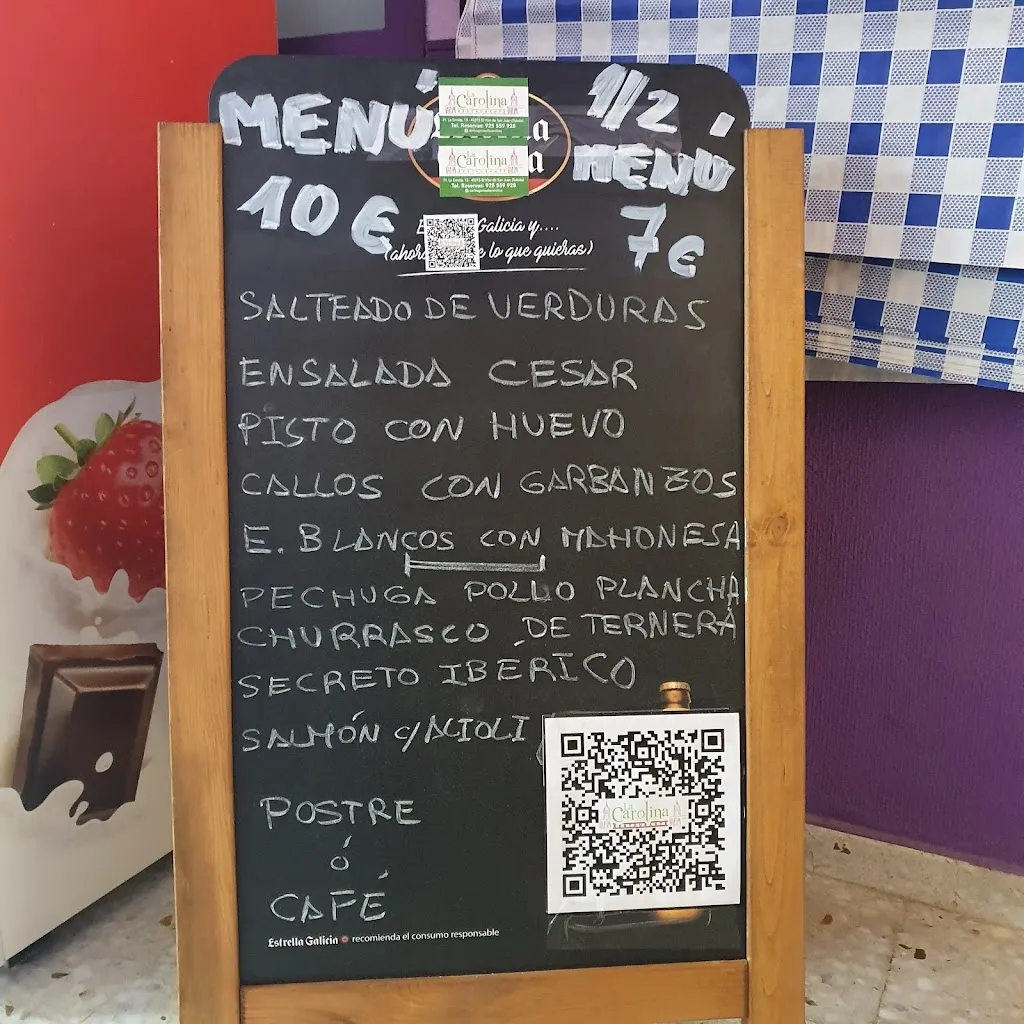 MENÚ
10 €
1/2
MENU
7 €
La
Carolina
Tel. Reservas: 925 559 928
La
Carolina
Tel. Reservas: 925 559 928
Galicia y....
(ahor e lo que quieras)
SALTEADO DE VERDURAS
ENSALADA CESAR
PISTO CON HUEVO
CALLOS CON GARBANZOS
E. BLANCOS CON MAHONESA
PECHUGA POLLO PLANCHA
CHURRASCO DE TERNERA
SECRETO IBÉRICO
SALMÓN C/ALIOLI
La
Carolina
POSTRE
Ó
CAFÉ
Estrella Galicia recomienda el consumo responsable